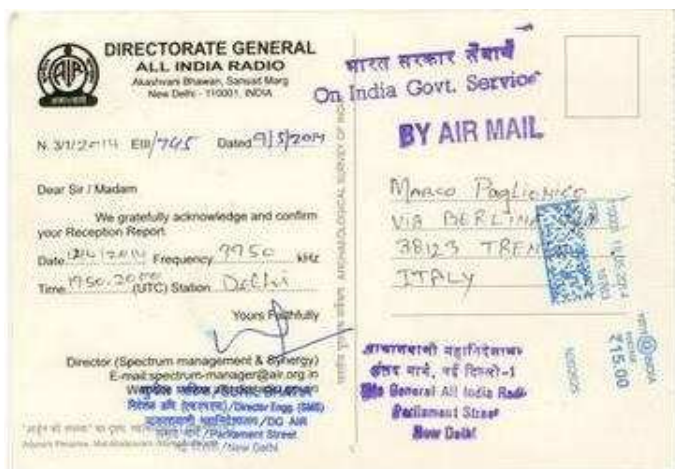 DIRECTORATE GENERAL
ALL INDIA RADIO
Akashvani Bhawan, Sansad Marg
New Delhi - 110001, INDIA
N. 3/1/2014 EIII/745 Dated 9/5/2014
Dear Sir / Madam
We gratefully acknowledge and confirm
your Reception Report
Date Frequency 9950 kHz
Time 1950-2000 (UTC) Station Delhi
Yours Faithfully
Director (Spectrum management & Synergy)
E-mail:spectrum-manager@air.org.in
/Director Engg. (SMS)
/DG AIR
/Parliament Street
/New Delhi
ARCHAEOLOGICAL SURVEY OF INDIA
भारत सरकार सेवार्थ
On India Govt. Service
BY AIR MAIL
MARCO Paglionico
VIA BERLINO
38123 TREN
ITALY
INDIA
₹15.00
आकाशवाणी महानिदेशालय
संसद मार्ग, नई दिल्ली-1
General All India Radio
Parliament Street
New Delhi